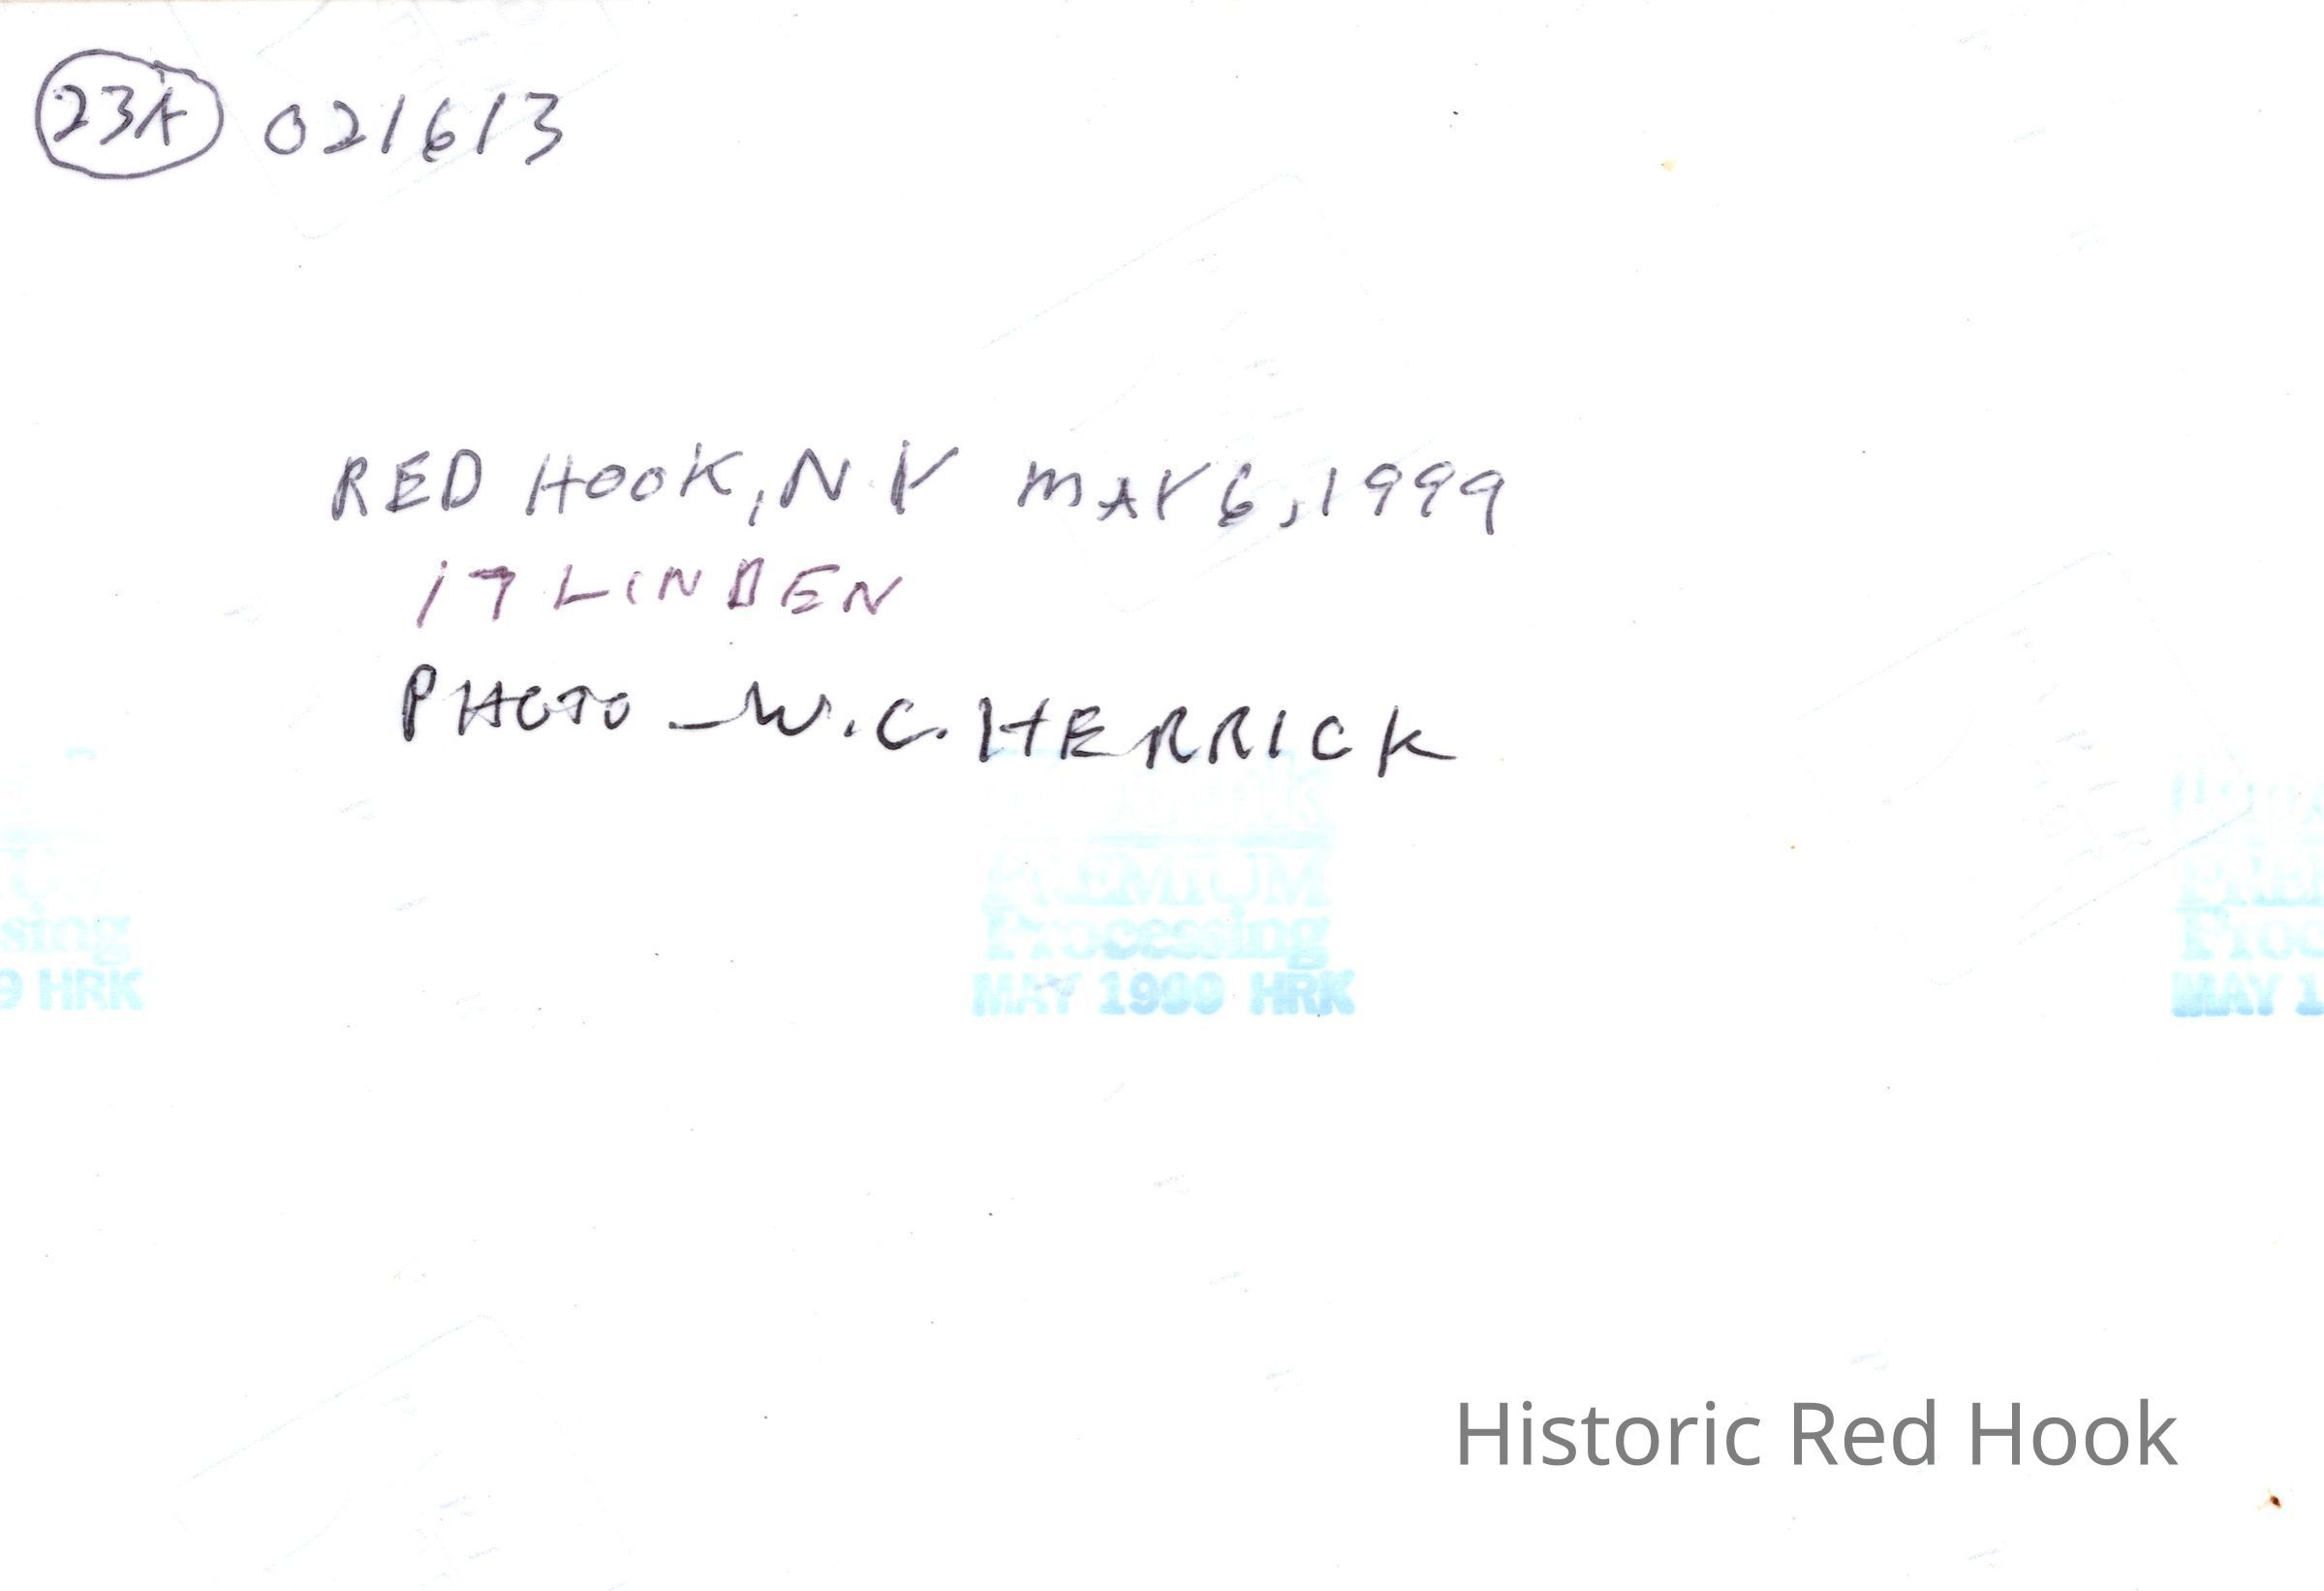 23A 021613
RED HOOK, NY MAY 6, 1999
17 LINDEN
PHOTO - W. C. HERRICK
PREMIUM
Processing
MAY 1999 HRK
sing
9 HRK
Proc
MAY 1
Historic Red Hook